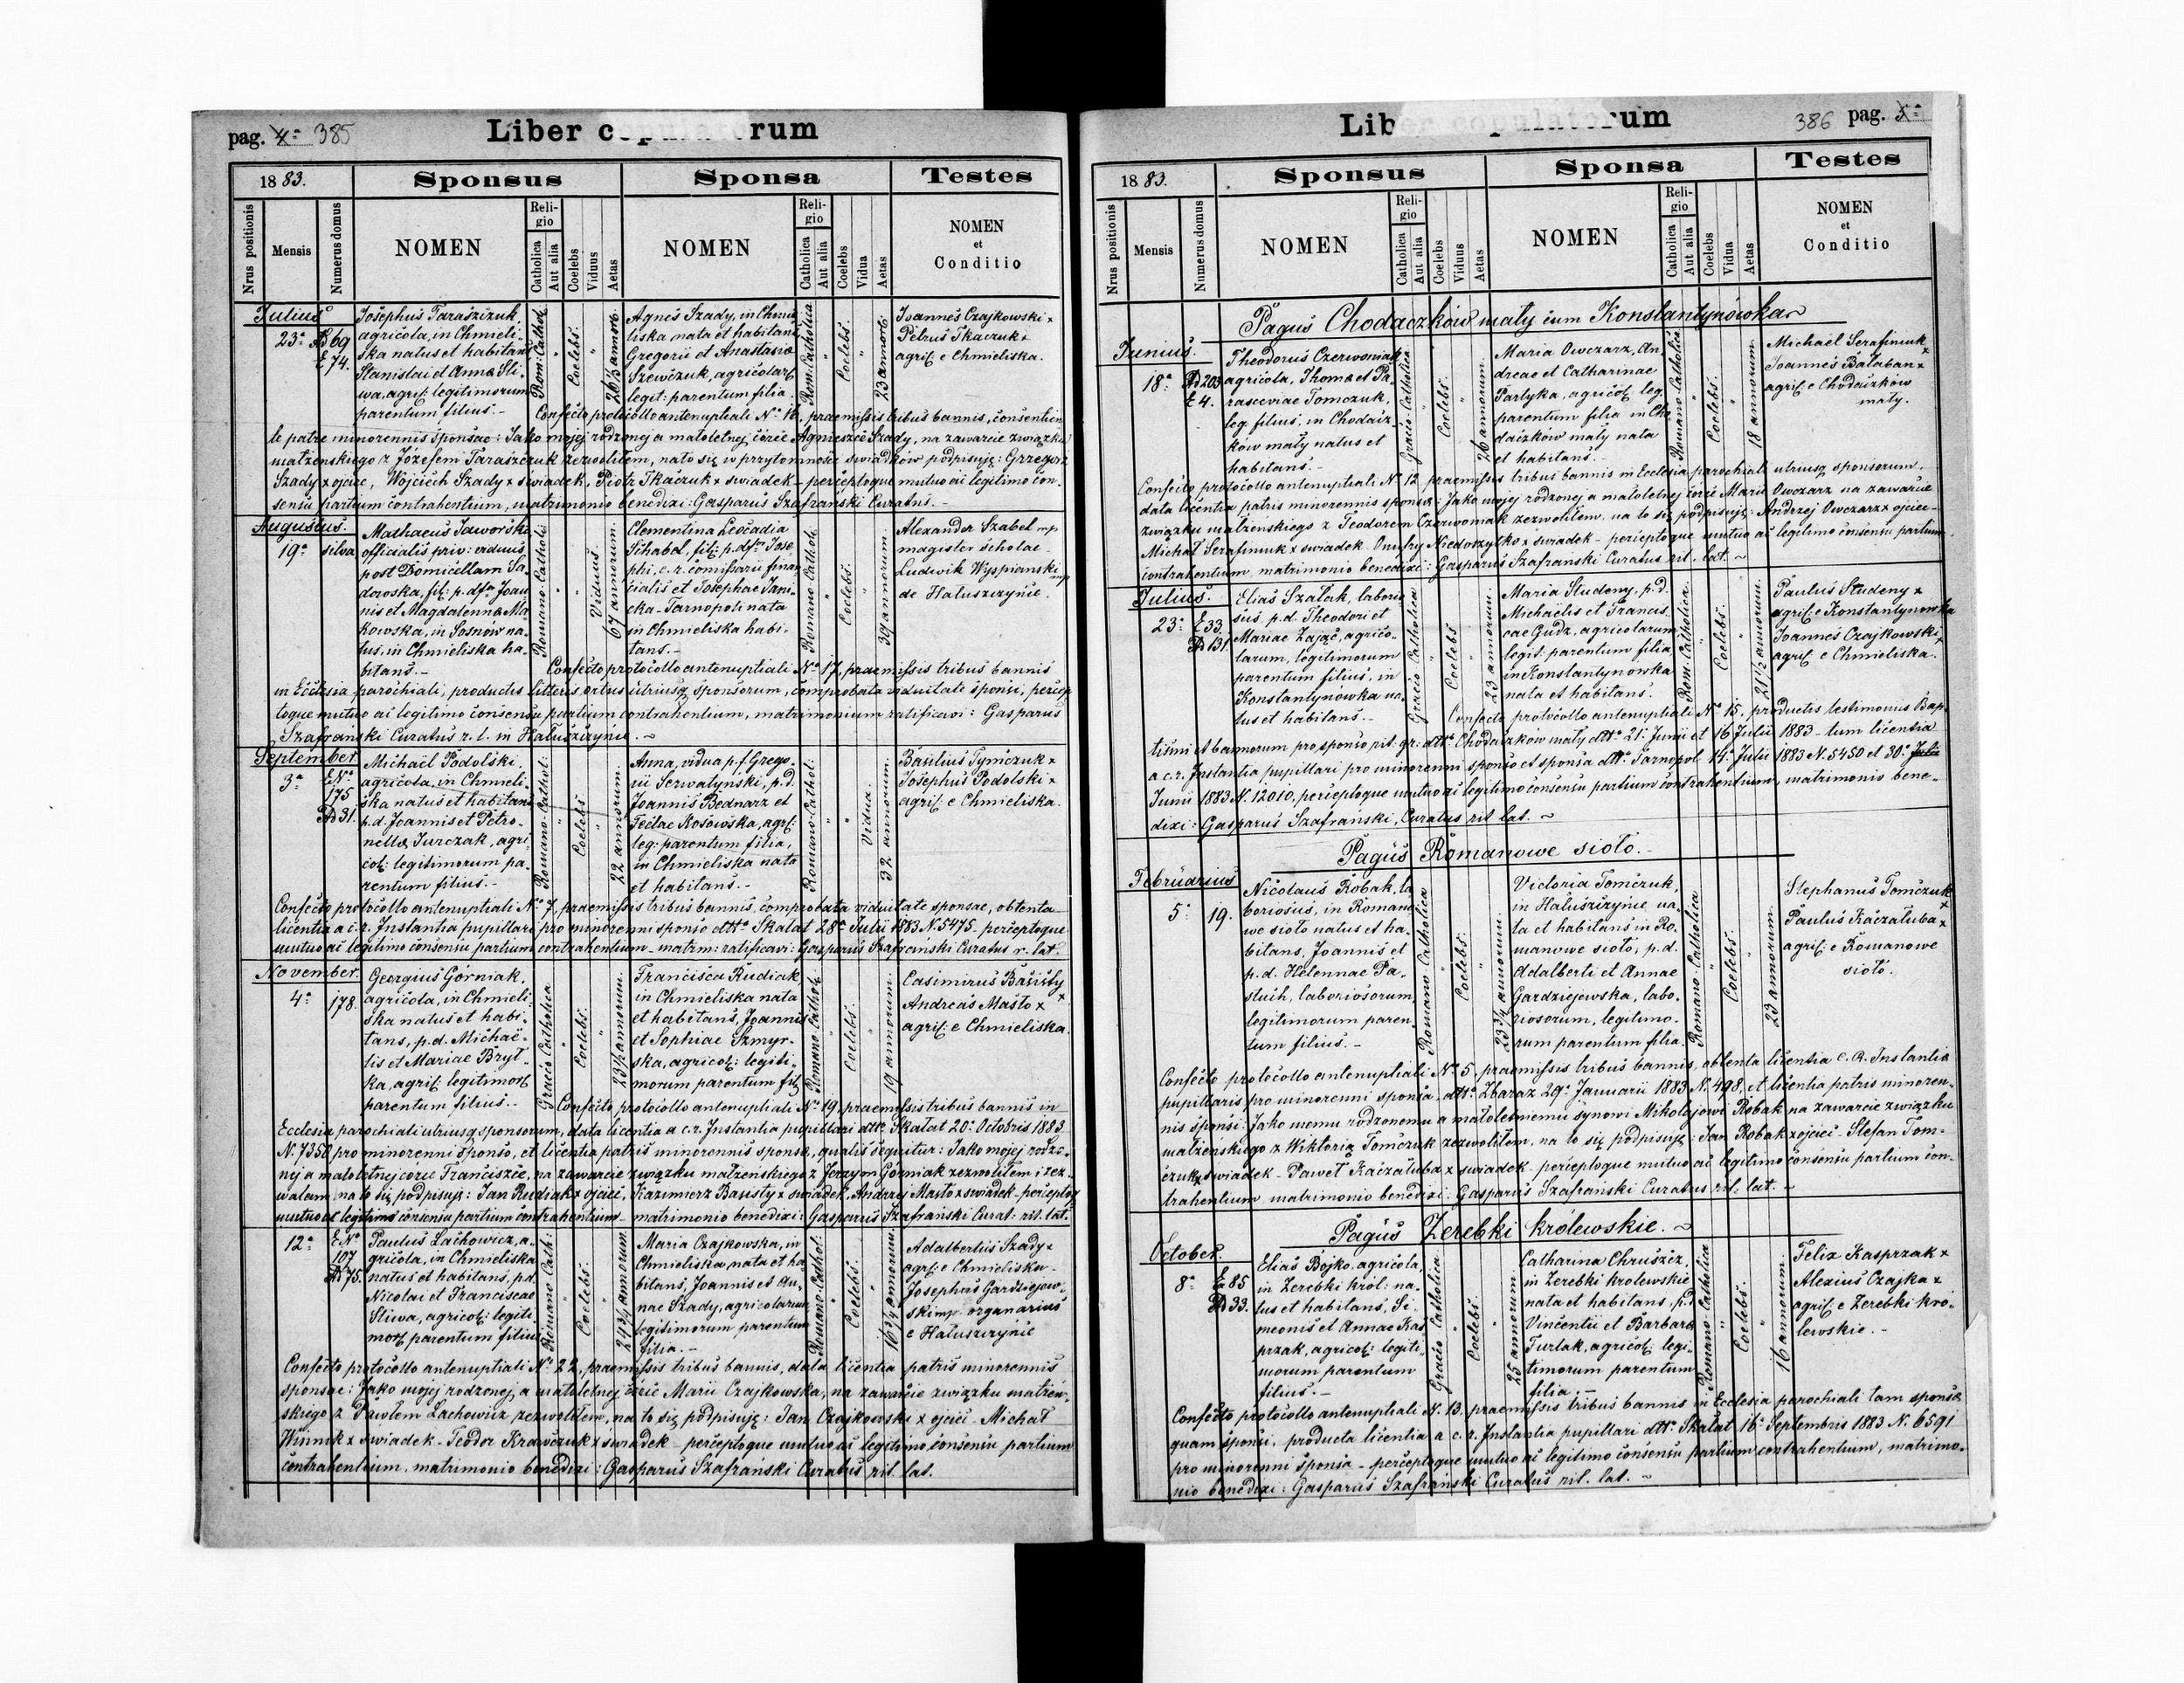 pag. 4a 385
Liber c pula rum
18 83.
Sponsus
Sponsa
Testes
Nrus positionis
Mensis
Numerus domus
NOMEN
Religio
Catholica
Aut alia
Coelebs
Viduus
Aetas
NOMEN
Religio
Catholica
Aut alia
Coelebs
Vidua
Aetas
NOMEN
et
Conditio
Julius
23a
Ad 69
E 74.
Josephus Taraszczuk,
agricola, in Chmieli-
ska natus et habitans
Stanislai et Annae Sli-
wa, agric: legitimorum
parentum filius.-
Rom: Cathol:
Coelebs.
26½ annor.
Agnes Szady, in Chmie
liska nata et habitans
Gregorii et Anastasiae
Szewczuk, agricolar
legit: parentum filia.
Rom: Catholica
Coelebs.
23 annor.
Joannes Czajkowski x
Petrus Tkaczuk x
agric. e Chmieliska.
Confecto protocollo antenuptiali No 16, praemissis tribus bannis, consentien
te patre minorennis sponsae: Jako mojej rodzonej a małoletnej córce Agnieszce Szady, na zawarcie związku
małżenskiego z Józefem Taraszczuk zezwoliłem, na to się w przytomności swiadków podpisuję: Grzegorz
Szady x ojciec, Wojciech Szady x swiadek, Piotr Tkaczuk x swiadek - perceptoque mutuo ac legitimo con-
sensu partium contrahentium, matrimonio benedixi: Gasparus Szafrański Curatus.-
Augustus.
19a
silva
Mathaeus Jaworski
officialis priv: viduus
post Domicellam Sa-
dowska, fil: p.dfor Joan
nis et Magdalenna Ma
kowska, in Sosnów na-
tus, in Chmieliska ha-
bitans.-
Romano-Cathol:
Viduus
67 annorum.
Clementina Leocadia
Schabel, fil: p. dfor Jose
phi, c. r. comissarii finan
cialis et Josephae Jani-
cka - Tarnopoli nata
in Chmieliska habi-
tans.-
Romano-Cathol:
Coelebs.
39 annorum.
Alexander Szabel mp
magister scholae -
Ludwik Wyspianski mp
de Hałuszczynce.
Confecto protocollo antenuptiali No 17, praemissis tribus bannis
in Ecclesia parochiali, productis litteris ortus utriusq sponsorum, comprobata viduitate sponsi, percep
toque mutuo ac legitimo consensu partium contrahentium, matrimonium ratificavi: Gasparus
Szafrański Curatus r. l. in Hałuszczynce.-
September.
3a
E No
175
Ad 31.
Michael Podolski,
agricola, in Chmieli-
ska natus et habitans
p.d. Joannis et Petro-
nella Jurczak, agri
col: legitimorum pa-
rentum filius.-
Romano-Cathol:
Coelebs
22 annorum.
Anna, vidua p. f. Grego-
rii Serwatyński, p.d.
Joannis Bednarz et
Teclae Kosowska, agr:
leg: parentum filia,
in Chmieliska nata
et habitans.-
Romano-Cathol:
Vidua.
32 annorum.
Basilius Tymczuk x
Josephus Podolski x
agric. e Chmieliska.
Confecto protocollo antenuptiali No 7, praemissis tribus bannis, comprobata viduitate sponsae, obtenta
licentia a c.r. Instantia pupillari pro minorenni sponso ddto Skałat 28a Julii 1883 N. 5475. perceptoque
mutuo ac legitimo consensu partium contrahentium - matrim: ratificavi: Gasparus Szafrański Curatus r. lat.
November.
4a
178.
Georgius Gorniak,
agricola, in Chmieli-
ska natus et habi-
tans, p.d. Michaë-
lis et Mariae Brył-
ka, agric: legitimor
parentum filius.-
Graeco Catholica
Coelebs.
23½ annorum.
Francisca Rudiak
in Chmieliska nata
et habitans, Joannis
et Sophiae Szmyr-
ska, agricol: legiti-
morum parentum fil
Romano-Cathol:
Coelebs.
19 annorum.
Casimirus Basisty x
Andreas Masło x
agric: e Chmieliska.
Confecto protocollo antenuptiali No 19, praemissis tribus bannis in
Ecclesia parochiali utriusq sponsorum, data licentia a c.r. Instantia pupillari ddto Skałat 20a Octobris 1883
N. 7350 pro minorenni sponso, et licentia patris minorennis sponsae, qualis sequitur: Jako mojej rodzo-
nej a małoletnej córce Franciszce, na zawarcie związku małżenskiego z Jerzym Gorniak zezwoliłem i zez-
walam, na to się podpisuję: Jan Rudiak x ojciec, Kazimierz Basisty x swiadek, Andrzej Masło x swiadek - perceptoq
mutuo ac legitimo consensu partium contrahentium - matrimonio benedixi: Gasparus Szafrański Curat: rit. lat.
12a
E No
107
Ad 75.
Paulus Lachowicz, a-
gricola, in Chmieliska
natus et habitans, p.d.
Nicolai et Franciscae
Sliwa, agricol: legiti
mor parentum filius
Romano Cath:
Coelebs.
24¾ annorum.
Maria Czajkowska, in
Chmieliska nata et ha
bitans, Joannis et An-
nae Szady, agricolarum
legitimorum parentum
filia.-
Romano-Cathol:
Coelebs.
16¾ annorum.
Adalbertus Szady x
agric: e Chmieliska -
Josephus Gardziejow-
ski mp. organarius
e Hałuszczynce
Confecto protocollo antenuptiali No 22, praemissis tribus bannis, data licentia patris minorennis
sponsae: Jako mojej rodzonej a małoletnej córce Marii Czajkowska, na zawarcie związku małżeń-
skiego z Pawłem Lachowicz zezwoliłem, na to się podpisuję: Jan Czajkowski x ojciec - Michał
Winnik x swiadek - Teodor Krawczuk x swiadek - perceptoque mutuo ac legitimo consensu partium
contrahentium, matrimonio benedixi: Gasparus Szafrański Curatus rit. lat.
Liber copulatorum
386 pag. 5a
18 83.
Sponsus
Sponsa
Testes
Nrus positionis
Mensis
Numerus domus
NOMEN
Religio
Catholica
Aut alia
Coelebs
Viduus
Aetas
NOMEN
Religio
Catholica
Aut alia
Coelebs
Vidua
Aetas
NOMEN
et
Conditio
Pagus Chodaczków mały cum Konstantynówka
Junius.
18a
Ad 203
E 4.
Theodorus Czerwoniak
agricola, Thomae et Pa-
rasceviae Tomczuk,
leg. filius, in Chodacz-
ków mały natus et
habitans.-
Graeco-Catholica
Coelebs.
26 annorum.
Maria Owczarz, An-
dreae et Catharinae
Partyka, agricol. leg.
parentum filia in Cho
daczków mały nata
et habitans.-
Romano-Catholica
Coelebs.
18 annorum.
Michael Serafiniuk x
Joannes Bałaban x
agric. e Chodaczków
mały.
Confecto protocollo antenuptiali N. 12 praemissis tribus bannis in Ecclesia parochiali utriusq sponsorum,
data licentia patris minorennis sponsae: Jako mojej rodzonej a małoletnej córce Marii Owczarz na zawarcie
związku małżenskiego z Teodorem Czerwoniak zezwoliłem, na to się podpisuję: Andrzej Owczarz x ojciec -
Michał Serafiniuk x swiadek - Onufry Niedoszytko x swiadek - perceptoque mutuo ac legitimo consensu partium
contrahentium, matrimonio benedixi: Gasparus Szafrański Curatus rit. lat. ~
Julius.
23a
E 33.
Ad 131.
Elias Szałak, laborio
sus, p.d. Theodori et
Mariae Zając, agrico-
larum, legitimorum
parentum filius, in
Konstantynówka na-
tus et habitans.-
Graeco Catholica
Coelebs
23 annorum.
Maria Studeny, p.d.
Michaelis et Francis
cae Gudz, agricolarum
legit: parentum filia
in Konstantynowka
nata et habitans.
Rom: Catholica
Coelebs.
21½ annorum.
Paulus Studeny x
agric. e Konstantynowka
Joannes Czajkowski x
agric. e Chmieliska.
Confecto protocollo antenuptiali No 15, productis testimoniis Bap-
tismi et bannorum pro sponso rit. gr. ddto Chodaczków mały ddto 21a Junii et 16 Julii 1883 - tum licentia
a c.r. Instantia pupillari pro minorenni sponso et sponsa ddto Tarnopol 14a Julii 1883 N. 5450 et 30a Julii
Junii 1883 N. 12010, perceptoque mutuo ac legitimo consensu partium contrahentium, matrimonio bene-
dixi: Gasparus Szafranski, Curatus rit lat. ~
Pagus Romanowe sioło.-
Februarius
5a
19.
Nicolaus Robak, la
boriosus, in Romano
we sioło natus et ha-
bitans, Joannis et
p.d. Helennae Pa-
stuch, laboriosorum,
legitimorum paren
tum filius.-
Romano-Catholica
Coelebs.
23¾ annorum.
Victoria Tomczuk,
in Hałuszczynce na-
ta et habitans in Ro-
manowe sioło, p.d.
Adalberti et Annae
Gardziejewska, labo-
riosorum, legitimo-
rum parentum filia.
Romano-Catholica
Coelebs.
23 annorum.
Stephanus Tomczuk x
Paulus Kaczałuba x
agric: e Romanowe
sioło.
Confecto protocollo antenuptiali No 5, praemissis tribus bannis, obtenta licentia C. R. Instantia
pupillaris pro minorenni sponsa, ddto Zbaraz 29a Januarii 1883 N. 498. et licentia patris minoren-
nis sponsi: Jako memu rodzonemu a małoletniemu synowi Mikołajowi Robak na zawarcie związku
małżeńskiego z Wiktorią Tomczuk zezwoliłem, na to się podpisuję: Jan Robak x ojciec - Stefan Tom-
czuk x swiadek - Paweł Kaczałuba x swiadek - perceptoque mutuo ac legitimo consensu partium con-
trahentium matrimonio benedixi: Gasparus Szafrański Curatus rit. lat. ~
Pagus Zerebki królewskie. ~
October.
8a
E 85
Ad 33.
Elias Bojko, agricola,
in Zerebki król: na-
tus et habitans, Si-
meonis et Annae Kas
przak, agricol: legiti-
morum parentum
filius.-
Graeco Catholica
Coelebs.
25 annorum
Catharina Chruszcz,
in Zerebki krolewskie
nata et habitans, p.d.
Vincentii et Barbara
Turlak, agricol: legi-
timorum parentum
filia.-
Romano-Catholica
Coelebs.
16 annorum.
Felix Kasprzak x
Alexius Czajka x
agric: e Zerebki kró-
lewskie.-
Confecto protocollo antenuptiali N. 13. praemissis tribus bannis in Ecclesia parochiali tam sponsae
quam sponsi, producta licentia a c.r. Instantia pupillari ddto Skałat 16a Septembris 1883 N. 6591
pro minorenni sponsa - perceptoque mutuo ac legitimo consensu partium contrahentium, matrimo-
nio benedixi: Gasparus Szafrański Curatus rit. lat. ~